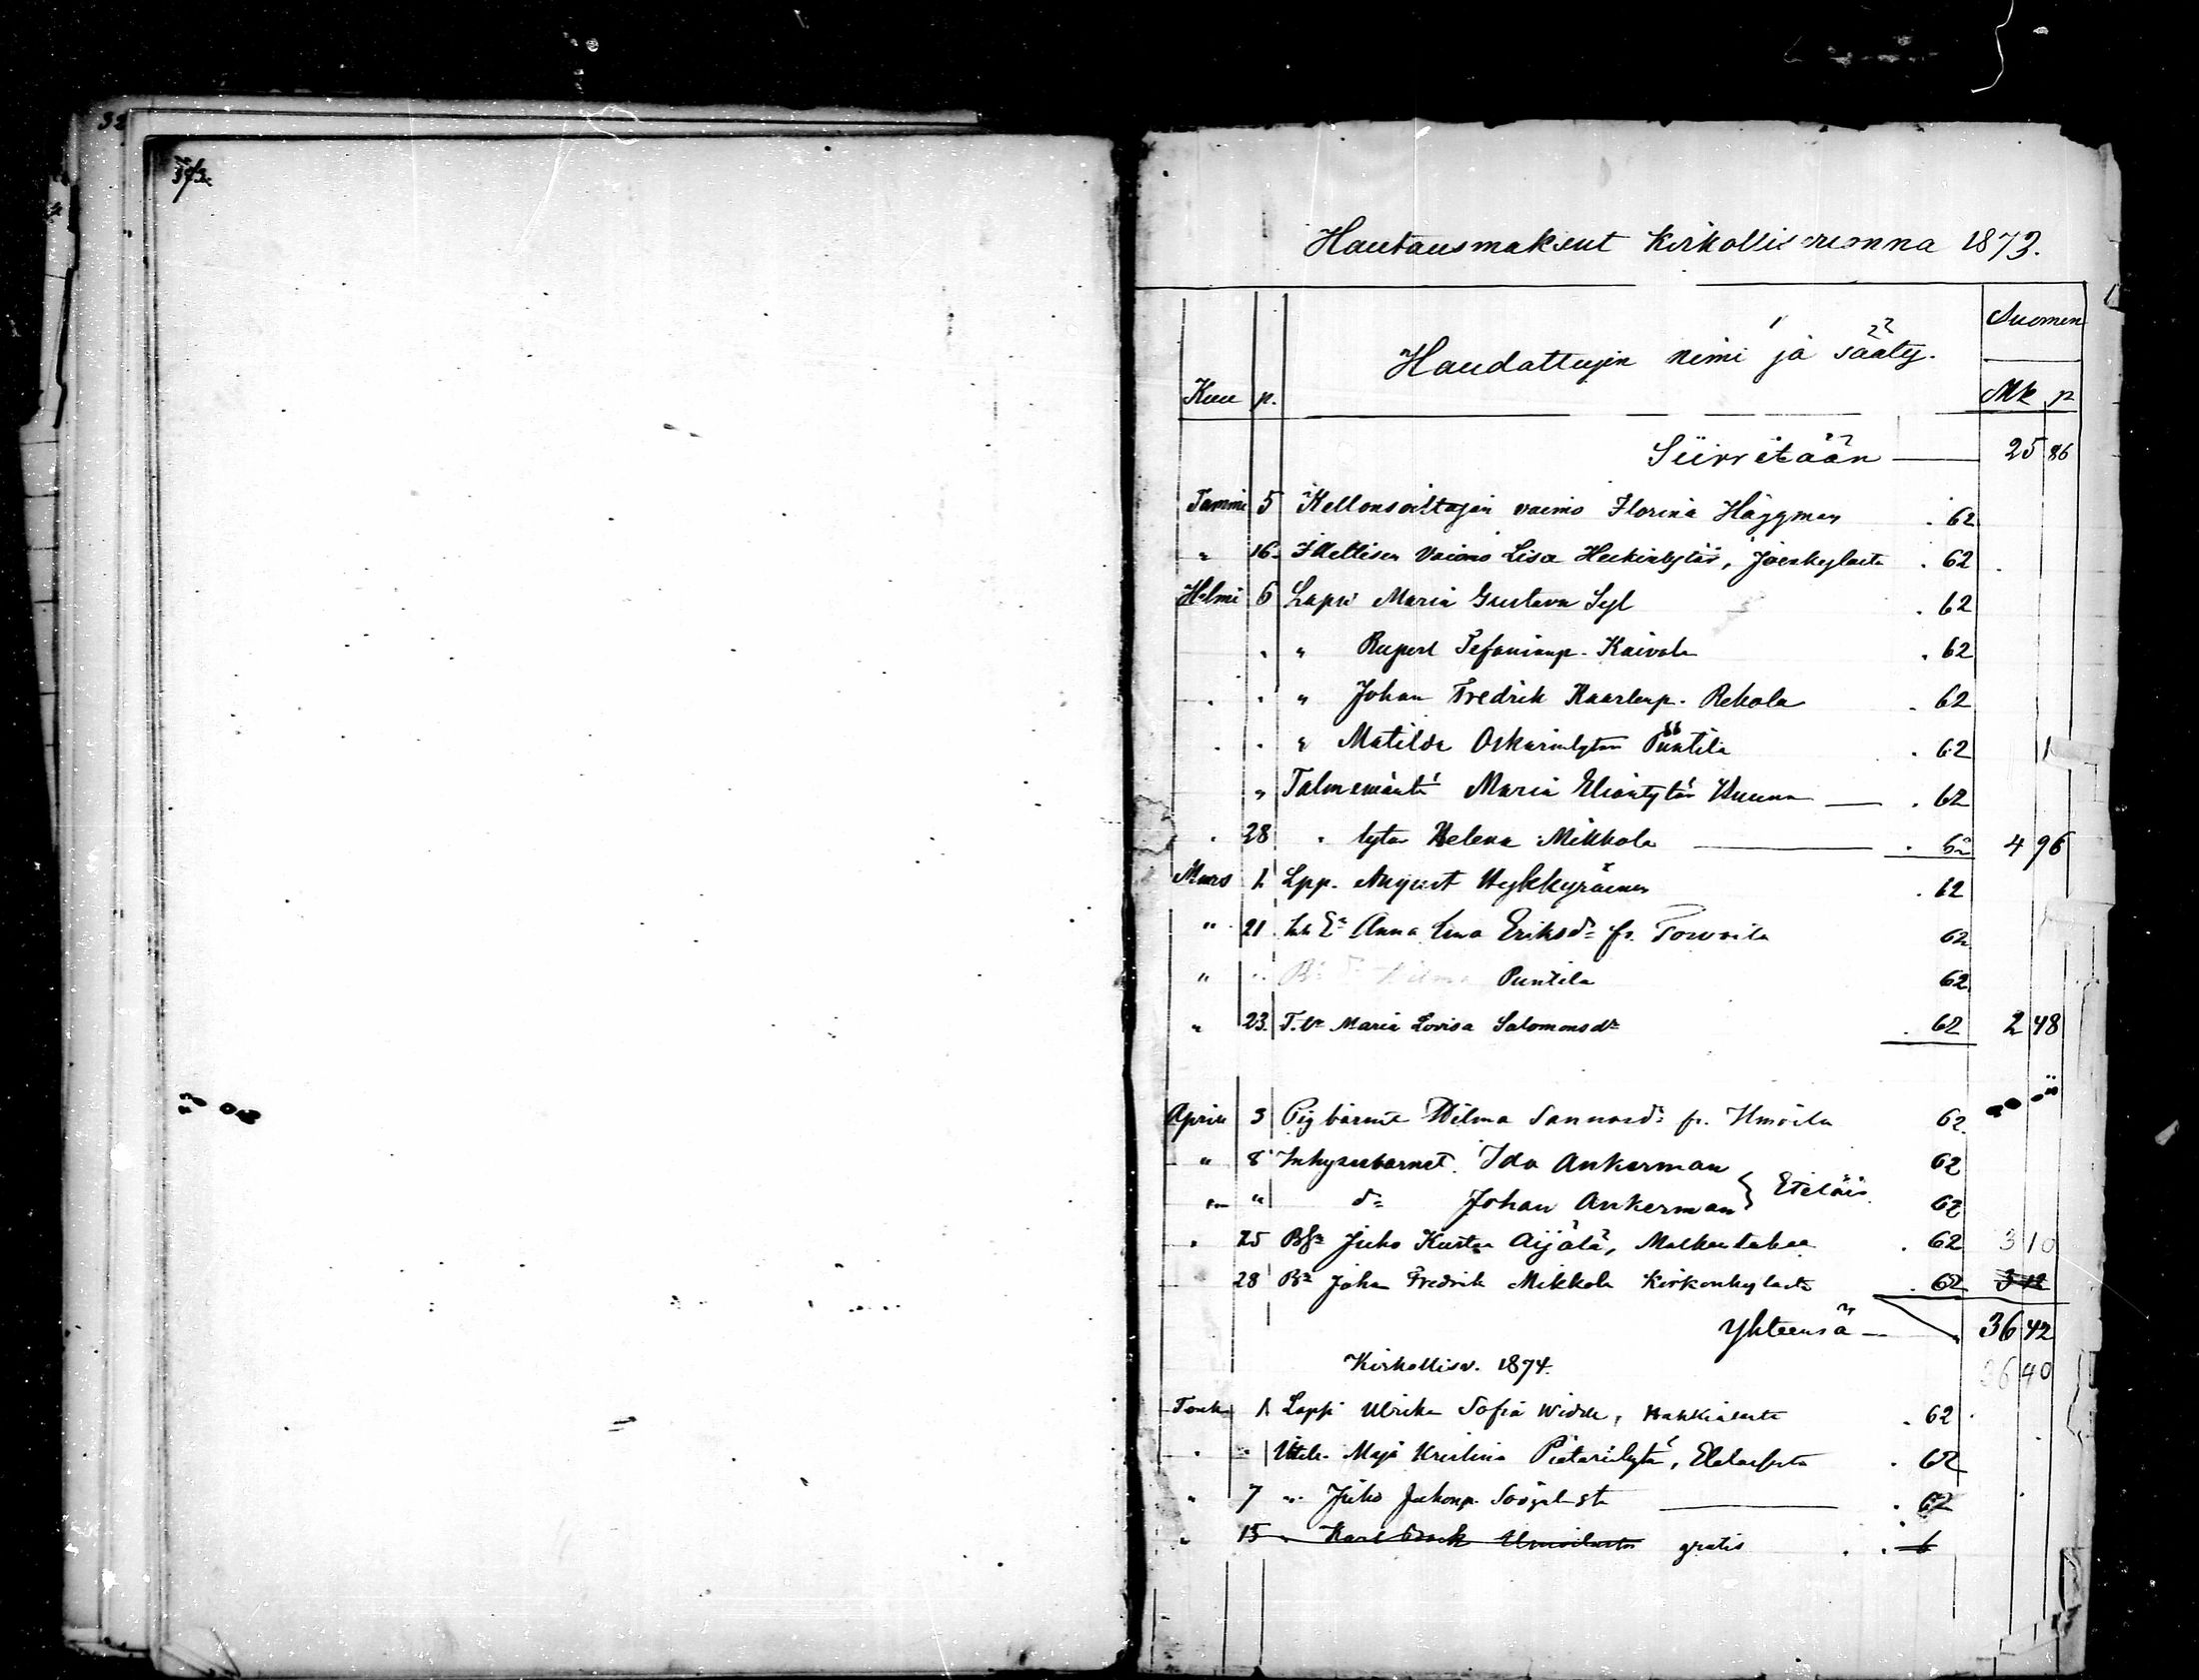 Hautausmaksut Kirkollisvuonna 1873.
Suomen
Haudattujen nimi ja sääty.
Kuu p. Mk p
Siirretään — 25 86
Tammi 5 Kellonsoittajan vaimo Florina Häggman . 62
" 16. Itsellisen vaimo Lisa Heikintytär, Joenkylästä . 62
Helmi 6 Lapsi Maria Gustava Syl . 62
" " Rupert Stefaninp. Kaivola . 62
" " " Johan Fredrik Kaarlenp. Rekola . 62
" " " Matilda Oskarintytär Puntila . 62
" Talonemäntä Maria Eliantytär Uuma — . 62
" 28 " tytär Helena Mikkola — . 62 4 96
Mars 1 Lpp. August Hykkyräinen . 62
" 21. Anna Lena Eriksdr fr. Torvoila 62
" " Puntila 62
" 23. T.dr Maria Lovisa Salomonsdr . 62 2 48
April 3 Pigbarnet Wilma Sannasdr fr. Umoila 62
" 8 Inhysesbarnet Ida Ankerman 62
" " do Johan Ankerman } Eteläis. 62
" 25 Juho Kusta Äijälä, Malkentakaa . 62 3 10
28 Johan Fredrik Mikkola Kirkonkylästä . 62
Yhteensä — 36 42
Kirkollisv. 1874. 36 40
Touk. 1 Lapsi Ulrika Sofia Widde, Hahkialasta . 62
" " Itsell. Maja Kristina Pietarintytär, . 62
" 7 " Juho Juhonp. — . 62
" 15 " Karl gratis . . 6